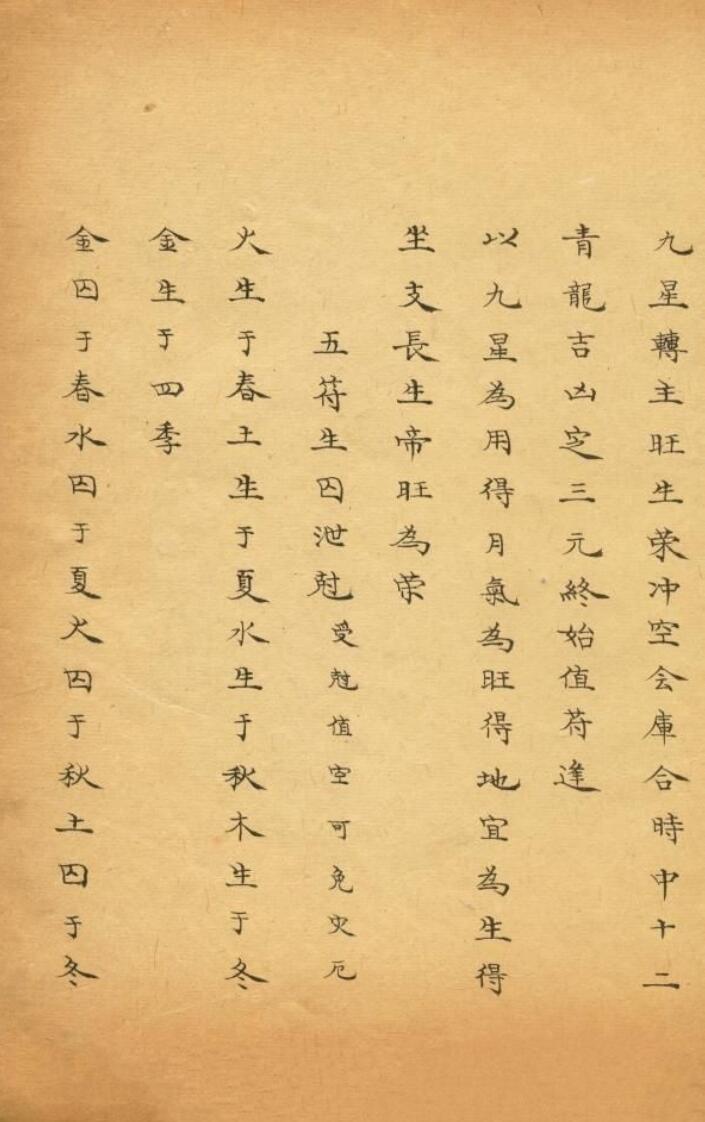 九星轉主旺生荣冲空会庫合時中十二
青龍吉凶定三元終始值符逢
以九星為用得月氣為旺得地宜為生得
坐支長生帝旺為荣
五符生囚泄尅受尅值空可免灾厄
火生于春土生于夏水生于秋木生于冬
金生于四季
金囚于春水囚于夏火囚于秋土囚于冬